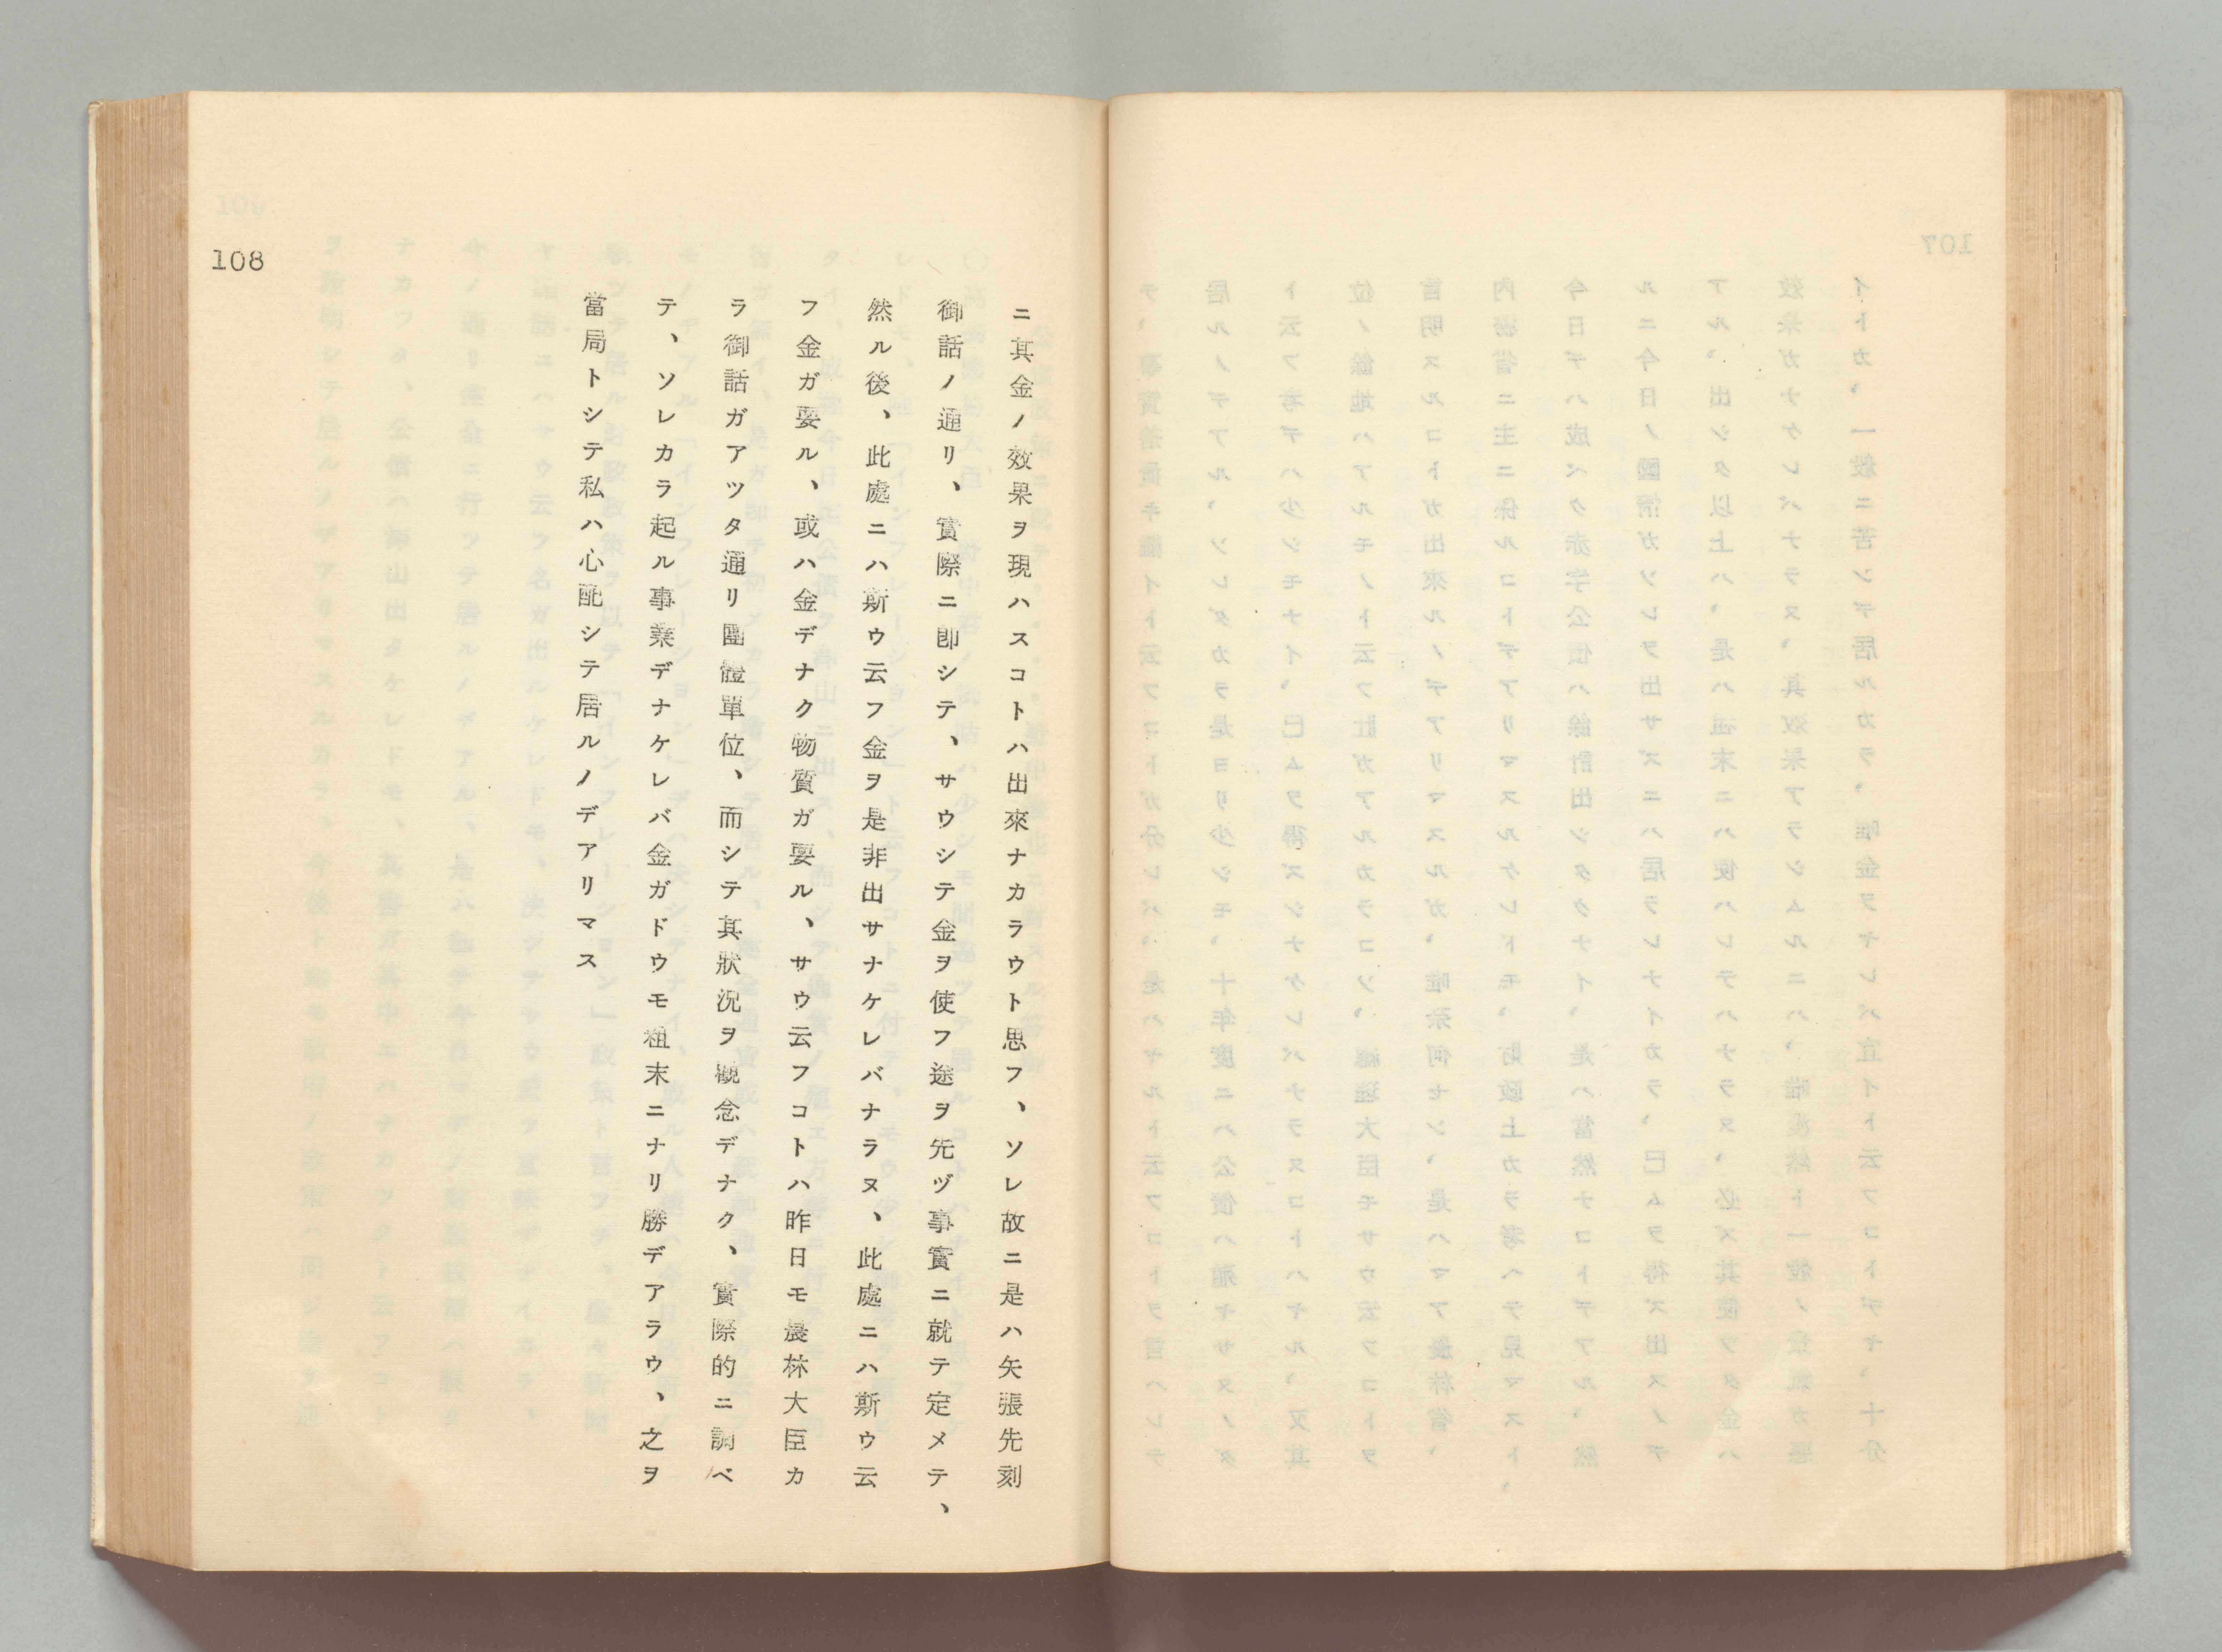 108
ニ其金ノ效果ヲ現ハスコトハ出來ナカラウト思フ、ソレ故ニ是ハ矢張先刻
御話ノ通リ、實際ニ卽シテ、サウシテ金ヲ使フ途ヲ先ヅ事實ニ就テ定メテ、
然ル後、此處ニハ斯ウ云フ金ヲ是非出サナケレバナラヌ、此處ニハ斯ウ云
フ金ガ要ル、或ハ金デナク物質ガ要ル、サウ云フコトハ昨日モ農林大臣カ
ラ御話ガアツタ通リ團體單位、而シテ其狀況ヲ觀念デナク、實際的ニ調べ
テ、ソレカラ起ル事業デナケレバ金ガドウモ粗末ニナリ勝デアラウ、之ヲ
當局トシテ私ハ心配シテ居ルノデアリマス